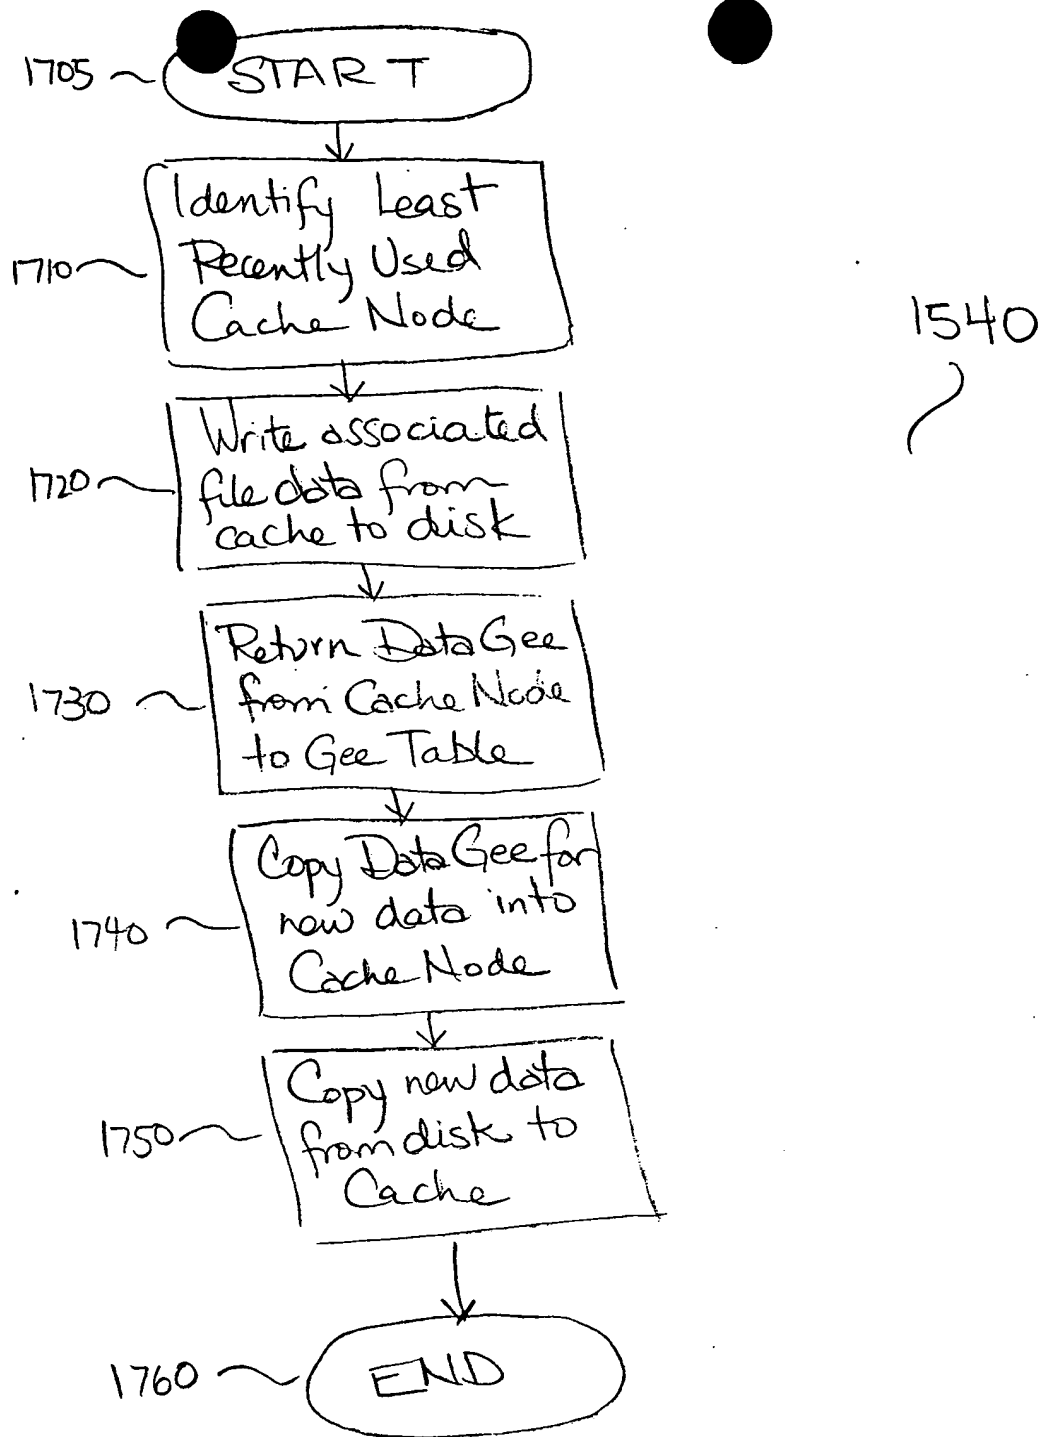 1705 START
Identify Least
1710 Recently Used
Cache Node
1540
Write associated
1720 file data from
cache to disk
Return Data Gee
1730 from Cache Node
to Gee Table
Copy Data Gee for
1740 new data into
Cache Node
Copy new data
1750 from disk to
Cache
1760 END